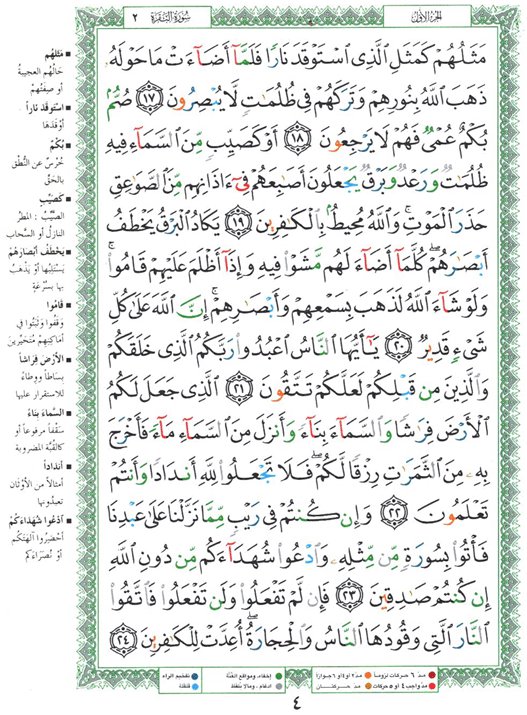 الجزء الأول
سورة البقرة ٢
مَثَلُهُمْ كَمَثَلِ ٱلَّذِى ٱسْتَوْقَدَ نَارًا فَلَمَّآ أَضَآءَتْ مَا حَوْلَهُۥ
ذَهَبَ ٱللَّهُ بِنُورِهِمْ وَتَرَكَهُمْ فِى ظُلُمَٰتٍ لَّا يُبْصِرُونَ ١٧ صُمٌّۢ
بُكْمٌ عُمْىٌ فَهُمْ لَا يَرْجِعُونَ ١٨ أَوْ كَصَيِّبٍ مِّنَ ٱلسَّمَآءِ فِيهِ
ظُلُمَٰتٌ وَرَعْدٌ وَبَرْقٌ يَجْعَلُونَ أَصَٰبِعَهُمْ فِىٓ ءَاذَانِهِم مِّنَ ٱلصَّوَٰعِقِ
حَذَرَ ٱلْمَوْتِ ۚ وَٱللَّهُ مُحِيطٌۢ بِٱلْكَٰفِرِينَ ١٩ يَكَادُ ٱلْبَرْقُ يَخْطَفُ
أَبْصَٰرَهُمْ ۖ كُلَّمَآ أَضَآءَ لَهُم مَّشَوْا۟ فِيهِ وَإِذَآ أَظْلَمَ عَلَيْهِمْ قَامُوا۟ ۚ
وَلَوْ شَآءَ ٱللَّهُ لَذَهَبَ بِسَمْعِهِمْ وَأَبْصَٰرِهِمْ ۚ إِنَّ ٱللَّهَ عَلَىٰ كُلِّ
شَىْءٍ قَدِيرٌ ٢٠ يَٰٓأَيُّهَا ٱلنَّاسُ ٱعْبُدُوا۟ رَبَّكُمُ ٱلَّذِى خَلَقَكُمْ
وَٱلَّذِينَ مِن قَبْلِكُمْ لَعَلَّكُمْ تَتَّقُونَ ٢١ ٱلَّذِى جَعَلَ لَكُمُ
ٱلْأَرْضَ فِرَٰشًا وَٱلسَّمَآءَ بِنَآءً وَأَنزَلَ مِنَ ٱلسَّمَآءِ مَآءً فَأَخْرَجَ
بِهِۦ مِنَ ٱلثَّمَرَٰتِ رِزْقًا لَّكُمْ ۖ فَلَا تَجْعَلُوا۟ لِلَّهِ أَندَادًا وَأَنتُمْ
تَعْلَمُونَ ٢٢ وَإِن كُنتُمْ فِى رَيْبٍ مِّمَّا نَزَّلْنَا عَلَىٰ عَبْدِنَا
فَأْتُوا۟ بِسُورَةٍ مِّن مِّثْلِهِۦ وَٱدْعُوا۟ شُهَدَآءَكُم مِّن دُونِ ٱللَّهِ
إِن كُنتُمْ صَٰدِقِينَ ٢٣ فَإِن لَّمْ تَفْعَلُوا۟ وَلَن تَفْعَلُوا۟ فَٱتَّقُوا۟
ٱلنَّارَ ٱلَّتِى وَقُودُهَا ٱلنَّاسُ وَٱلْحِجَارَةُ ۖ أُعِدَّتْ لِلْكَٰفِرِينَ ٢٤
مَثَلُهُم
حَالُهُم العجيبةُ
أو صِفَتُهُمْ
اسْتَوْقَدَ ناراً
أوْقَدَها
بُكْمٌ
خُرْسٌ عن النُّطْقِ
بالحَقِّ
كَصَيِّبٍ
الصَّيِّبُ : المطَرُ
النازِلُ أو السَّحاب
يَخْطَفُ أبْصَارَهُمْ
يَسْتَلِبُها أوْ يَذْهَبُ
بها بسُرْعَةٍ
قاموا
وَقَفُوا وثَبَتُوا في
أماكِنِهِمْ مُتَحَيِّرين
الأرْضَ فِراشاً
بِسَاطاً ووِطاءً
للاستقرارِ عليها
السَّماءَ بِناءً
سَقْفاً مرفوعاً أو
كالقُبَّةِ المضروبة
أنداداً
أمثالاً من الأوْثَانِ
تعبدُونها
ادْعُوا شُهَداءَكُمْ
أحْضِرُوا آلهَتَكُم
أوْ نُصَراءَكُم
مدّ ٦ حركات لزوماً
مدّ ٢ أو ٤ أو ٦ جوازاً
إخفاء، ومواقع الغُنَّة
تفخيم الراء
مدّ واجب ٤ أو ٥ حركات
مدّ حركتان
إدغام ، وما لا يُلفَظ
قلقلة
٤